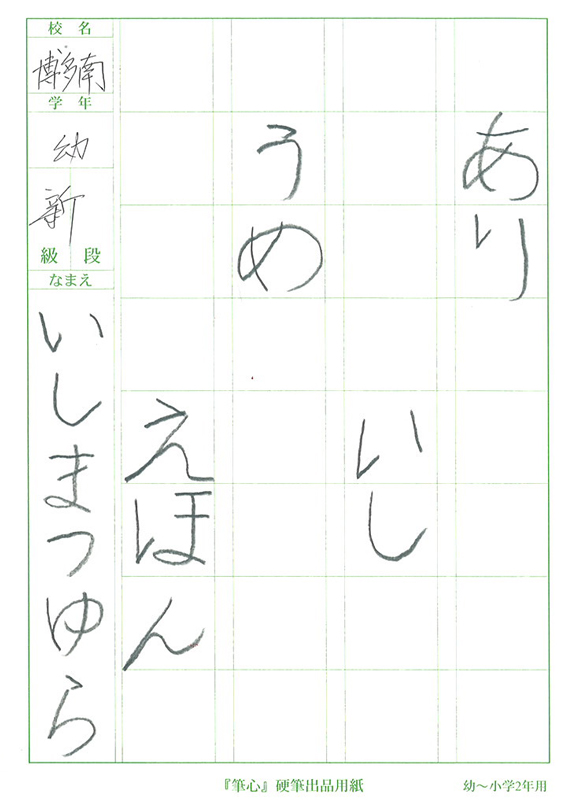 あり
いし
うめ
えほん
校名
博多南
学年
幼
新
級段
なまえ
いしまつゆら
『筆心』硬筆出品用紙
幼〜小学2年用